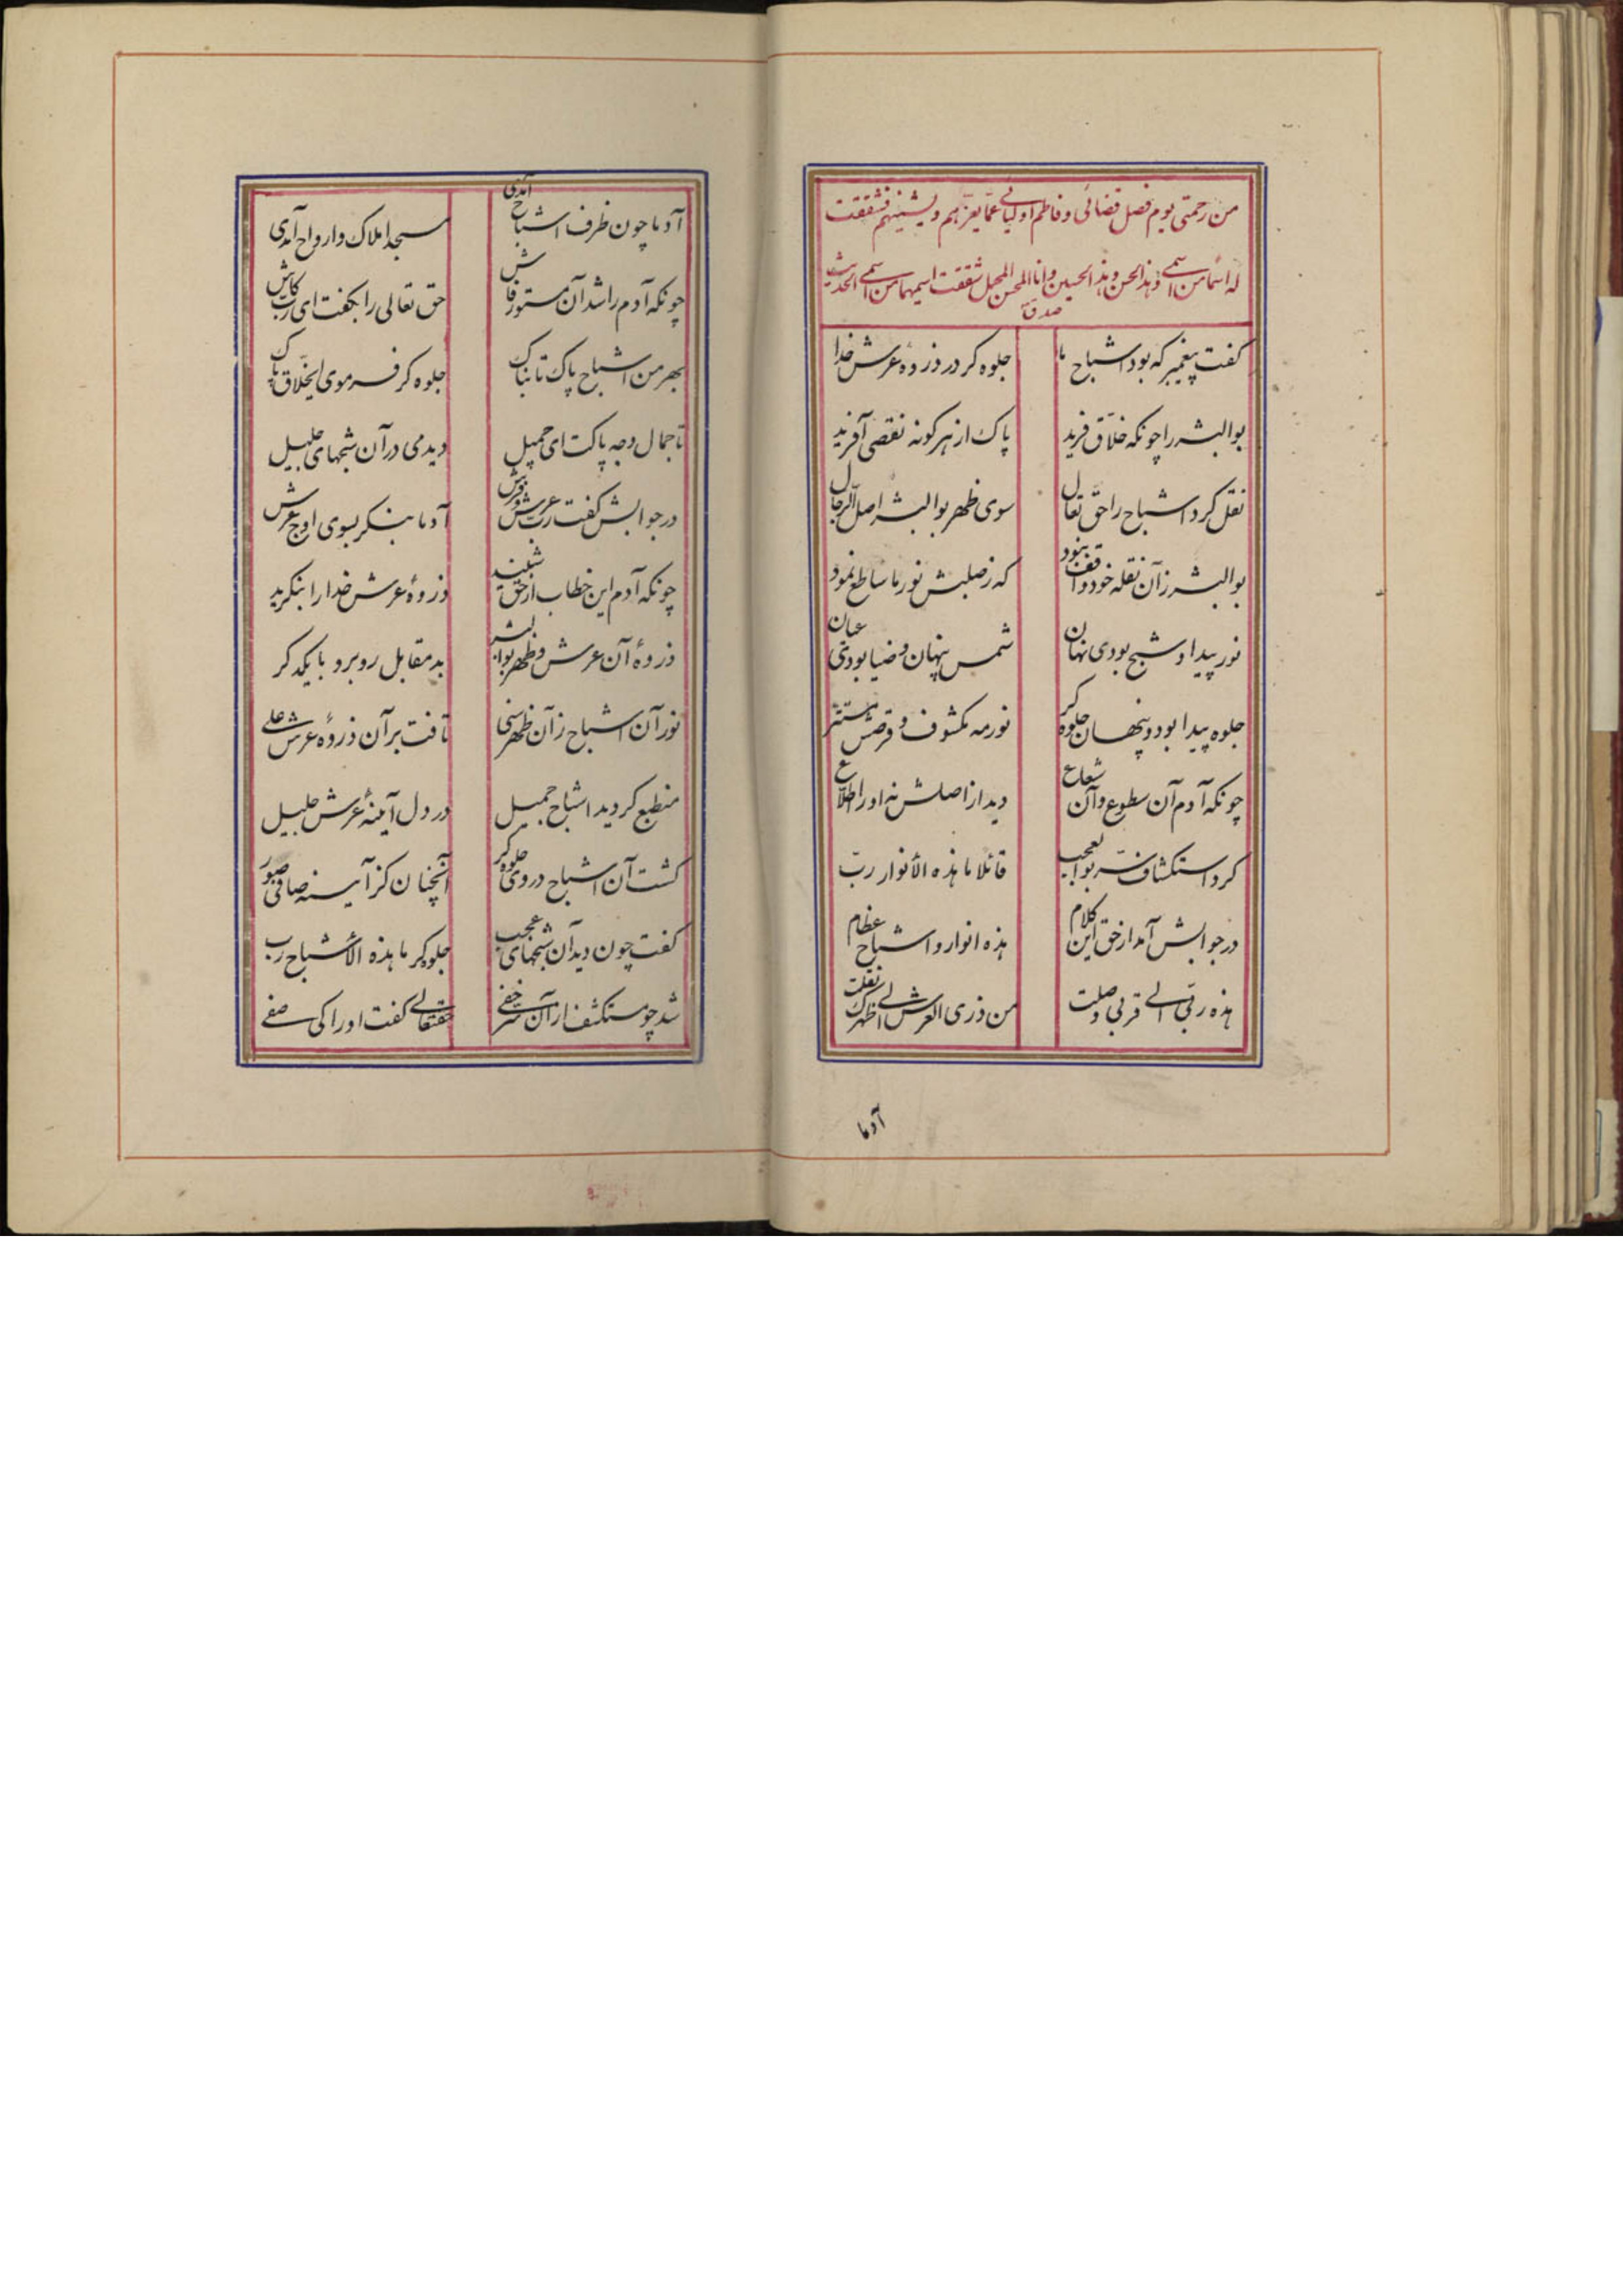 من رحمتی یوم فصل قضائی و فاطم اولیائی عمّا یعزّهم و یشینهم فشققت
له اسما من اسمی و هذا الحسن و هذا الحسین و انا المحسن المجمل شققت اسمیهما من اسمی الحدیث
صدق
گفت پیغمبر که بود اشباح ما جلوه‌گر در ذروهٔ عرش خدا
بوالبشر را چونکه خلاق فرید پاک از هر گونه نقصی آفرید
نقل کرد اشباح را حق تعال سوی ظهر بوالبشر اصل الرجال
بوالبشر زآن نقله خود واقف نبود که ز صلبش نور ما ساطع نمود
نور پیدا و شبح بودی نهان شمس پنهان و ضیا بودی عیان
جلوه پیدا بود و پنهان جلوه‌گر نور مه مکشوف و قرصش مستتر
چونکه آدم آن سطوع و آن شعاع دید از اصلش نه او را اطلاع
کرد استکشاف سرّ بوالعجب قائلا ما هذه الأنوار ربّ
در جوابش آمد از حق این کلام هذه انوار و اشباح عظام
هذه ربّی الی قربی وصلت من ذری العرش الی ظهرک نقلت
آدما
آدما چون ظرف اشباح آمدی مسجد املاک و ارواح آمدی
چونکه آدم را شد آن مستور فاش حق تعالی را بگفت ای رب کاش
بهر من اشباح پاک تابناک جلوه‌گر فرمودی ای خلاق پاک
تا جمال وجه پاکت ای جمیل دیدمی در آن شبحهای جلیل
در جوابش گفت رب عرش و فرش آدما بنگر بسوی اوج عرش
چونکه آدم این خطاب از حق شنید ذروهٔ عرش خدا را بنگرید
ذروهٔ آن عرش و ظهر بوالبشر بد مقابل روبرو با یکدگر
نور آن اشباح زآن ظهر سنی تافت بر آن ذروهٔ عرش علی
منطبع گردید اشباح جمیل در دل آینهٔ عرش جلیل
گشت آن اشباح در وی جلوه‌گر آنچنان کز آینه صافی صور
گفت چون دید آن شبحهای عجب جلوه‌گر ما هذه الأشباح رب
شد چو مستکشف از آن سرّ خفی حقتعالی گفت او را کی صفی